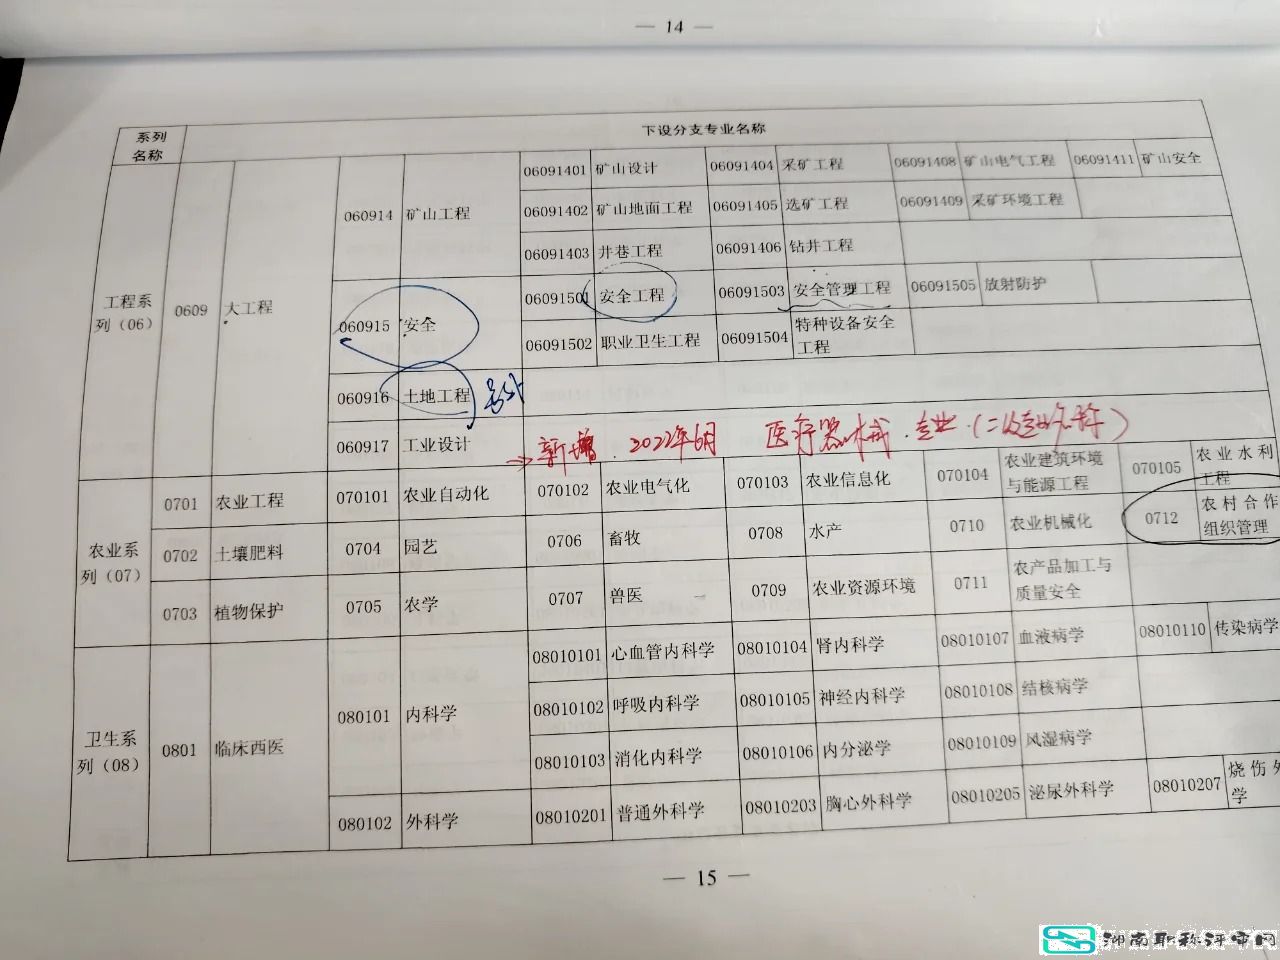 — 14 —
系列名称 下设分支专业名称
工程系列（06） 0609 大工程
060914 矿山工程 06091401 矿山设计 06091404 采矿工程 06091408 矿山电气工程 06091411 矿山安全
06091402 矿山地面工程 06091405 选矿工程 06091409 采矿环境工程
06091403 井巷工程 06091406 钻井工程
060915 安全 06091501 安全工程 06091503 安全管理工程 06091505 放射防护
06091502 职业卫生工程 06091504 特种设备安全工程
060916 土地工程
060917 工业设计 新增 2022年6月 医疗器械 专业（二级专业名称）
农业系列（07）
0701 农业工程 070101 农业自动化 070102 农业电气化 070103 农业信息化 070104 农业建筑环境与能源工程 070105 农业水利工程
0702 土壤肥料 0704 园艺 0706 畜牧 0708 水产 0710 农业机械化 0712 农村合作组织管理
0703 植物保护 0705 农学 0707 兽医 0709 农业资源环境 0711 农产品加工与质量安全
卫生系列（08） 0801 临床西医
080101 内科学 08010101 心血管内科学 08010104 肾内科学 08010107 血液病学 08010110 传染病学
08010102 呼吸内科学 08010105 神经内科学 08010108 结核病学
08010103 消化内科学 08010106 内分泌学 08010109 风湿病学
080102 外科学 08010201 普通外科学 08010203 胸心外科学 08010205 泌尿外科学 08010207 烧伤外学
— 15 —
湖南职称评审网